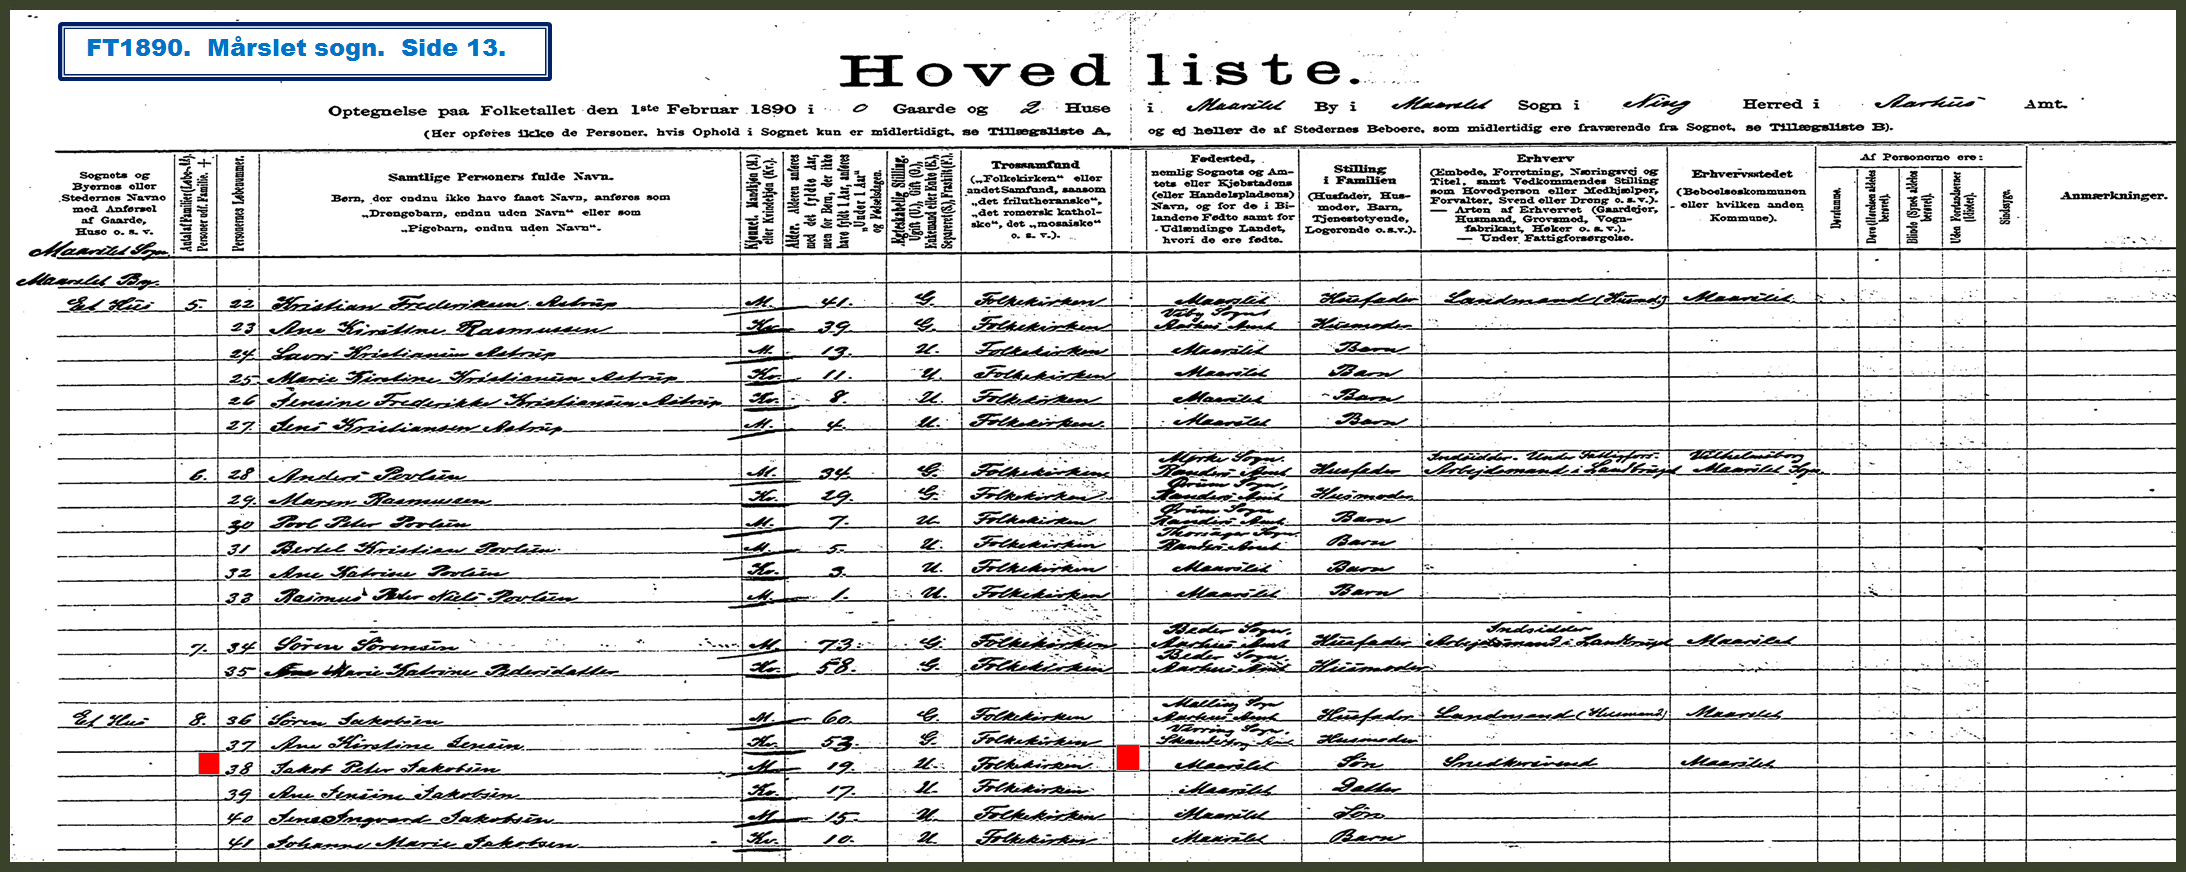 FT1890. Mårslet sogn. Side 13.
Hovedliste.
Optegnelse paa Folketallet den 1ste Februar 1890 i 0 Gaarde og 2 Huse i Maarslet By i Maarslet Sogn i Ning Herred i Aarhus Amt.
(Her opføres ikke de Personer, hvis Ophold i Sognet kun er midlertidigt, se Tillægsliste A, og ej heller de af Stedernes Beboere, som midlertidig ere fraværende fra Sognet, se Tillægsliste B).
Sognets og Byernes eller Stedernes Navne med Anførsel af Gaarde, Huse o. s. v.
Personernes Løbenummer.
Samtlige Personers fulde Navn.
Børn, der endnu ikke have faaet Navn, anføres som „Drengebarn, endnu uden Navn“ eller som „Pigebarn, endnu uden Navn“.
Kjønnet. Mandkjøn (M.) eller Kvindekjøn (Kv.).
Alder. Alderen anføres med det fyldte Aar, men for Børn, der ikke have fyldt 1 Aar, anføres „Under 1 Aar“ og Fødselsdagen.
Ægteskabelig Stilling. Ugift (U.), Gift (G.), Enkemand eller Enke (E.), Separeret (S.), Fraskilt (F.).
Trossamfund („Folkekirken“ eller andet Samfund, saasom „det frilutheranske“, „det romersk katholske“, det „mosaiske“ o. s. v.).
Fødested, nemlig Sognets og Amtets eller Kjøbstadens (eller Handelspladsens) Navn, og for de i Bilandene Fødte samt for Udlændinge Landet, hvori de ere fødte.
Stilling i Familien (Husfader, Husmoder, Barn, Tjenestetyende, Logerende o.s.v.).
Erhverv (Embede, Forretning, Næringsvej og Titel, samt Vedkommendes Stilling som Hovedperson eller Medhjælper, Forvalter, Svend eller Dreng o. s. v.). — Arten af Erhvervet (Gaardejer, Husmand, Grovsmed, Vognfabrikant, Høker o. s. v.). — Under Fattigforsørgelse.
Erhvervsstedet (Beboelseskommunen eller hvilken anden Kommune).
Af Personerne ere:
Døvstumme.
Døve (Hørelsen aldeles berøvet).
Blinde (Synet aldeles berøvet).
Uden Forstandsevner (Idioter).
Sindssyge.
Anmærkninger.
Maarslet Sogn.
Maarslet By.
Et Hus 5. 22 Kristian Frederiksen Astrup M. 41. G. Folkekirken Maarslet Husfader Landmand (Husmd.) Maarslet.
23 Ane Kirstine Rasmussen Kv. 39. G. Folkekirken Viby Sogn Aarhus Amt Husmoder
24 Lavrs Kristiansen Astrup M. 13. U. Folkekirken Maarslet Barn
25 Marie Kirstine Kristiansen Astrup Kv. 11. U. Folkekirken Maarslet Barn
26 Jensine Frederikke Kristiansen Astrup Kv. 8. U. Folkekirken Maarslet Barn
27. Jens Kristiansen Astrup M. 4. U. Folkekirken. Maarslet Barn
6. 28 Anders Povlsen M. 34. G. Folkekirken Mørke Sogn. Randers Amt Husfader Indsidder. Under Fattigfors. Arbejdsmand i Landbruget Vilhelmsborg Maarslet Sogn
29. Maren Rasmussen Kv. 29. G. Folkekirken Ørum Sogn. Randers Amt Husmoder
30 Povl Peter Povlsen M. 7. U. Folkekirken Ørum Sogn Randers Amt. Barn
31 Bertel Kristian Povlsen. M. 5. U. Folkekirken Thorsager Sogn. Randers Amt Barn
32 Ane Katrine Povlsen Kv. 3. U. Folkekirken Maarslet Barn
33 Rasmus Peter Niels Povlsen M. 1. U. Folkekirken Maarslet Barn
7. 34 Sören Sörensen M. 73. G. Folkekirken Beder Sogn. Aarhus Amt Husfader Indsidder Arbejdsmand i Landbruget Maarslet
35 Ane Marie Katrine Pedersdatter Kv. 58. G. Folkekirken Beder Sogn Aarhus Amt Husmoder
Et Hus 8. 36 Sören Jakobsen M. 60. G. Folkekirken Malling Sogn Aarhus Amt Husfader Landmand (Husmand) Maarslet
37 Ane Kirstine Jensen Kv. 53. G. Folkekirken Sogn. Skanderborg Amt Husmoder
38 Jakob Peter Jakobsen M. 19. U. Folkekirken Maarslet Søn Snedkersvend Maarslet
39 Ane Jensine Jakobsen Kv. 17. U. Folkekirken Maarslet Datter
40 Jens Ingvard Jakobsen M. 15. U. Folkekirken Maarslet Søn
41 Johanne Marie Jakobsen Kv. 10. U. Folkekirken Maarslet Barn